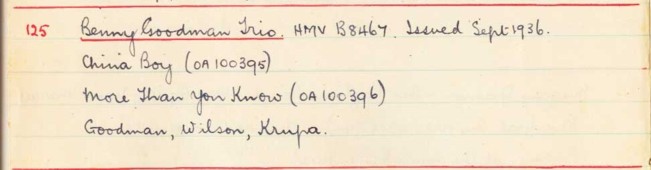 125 Benny Goodman Trio. HMV B8467. Issued Sept 1936.
China Boy (OA100395)
More Than You Know (OA100396)
Goodman, Wilson, Krupa.